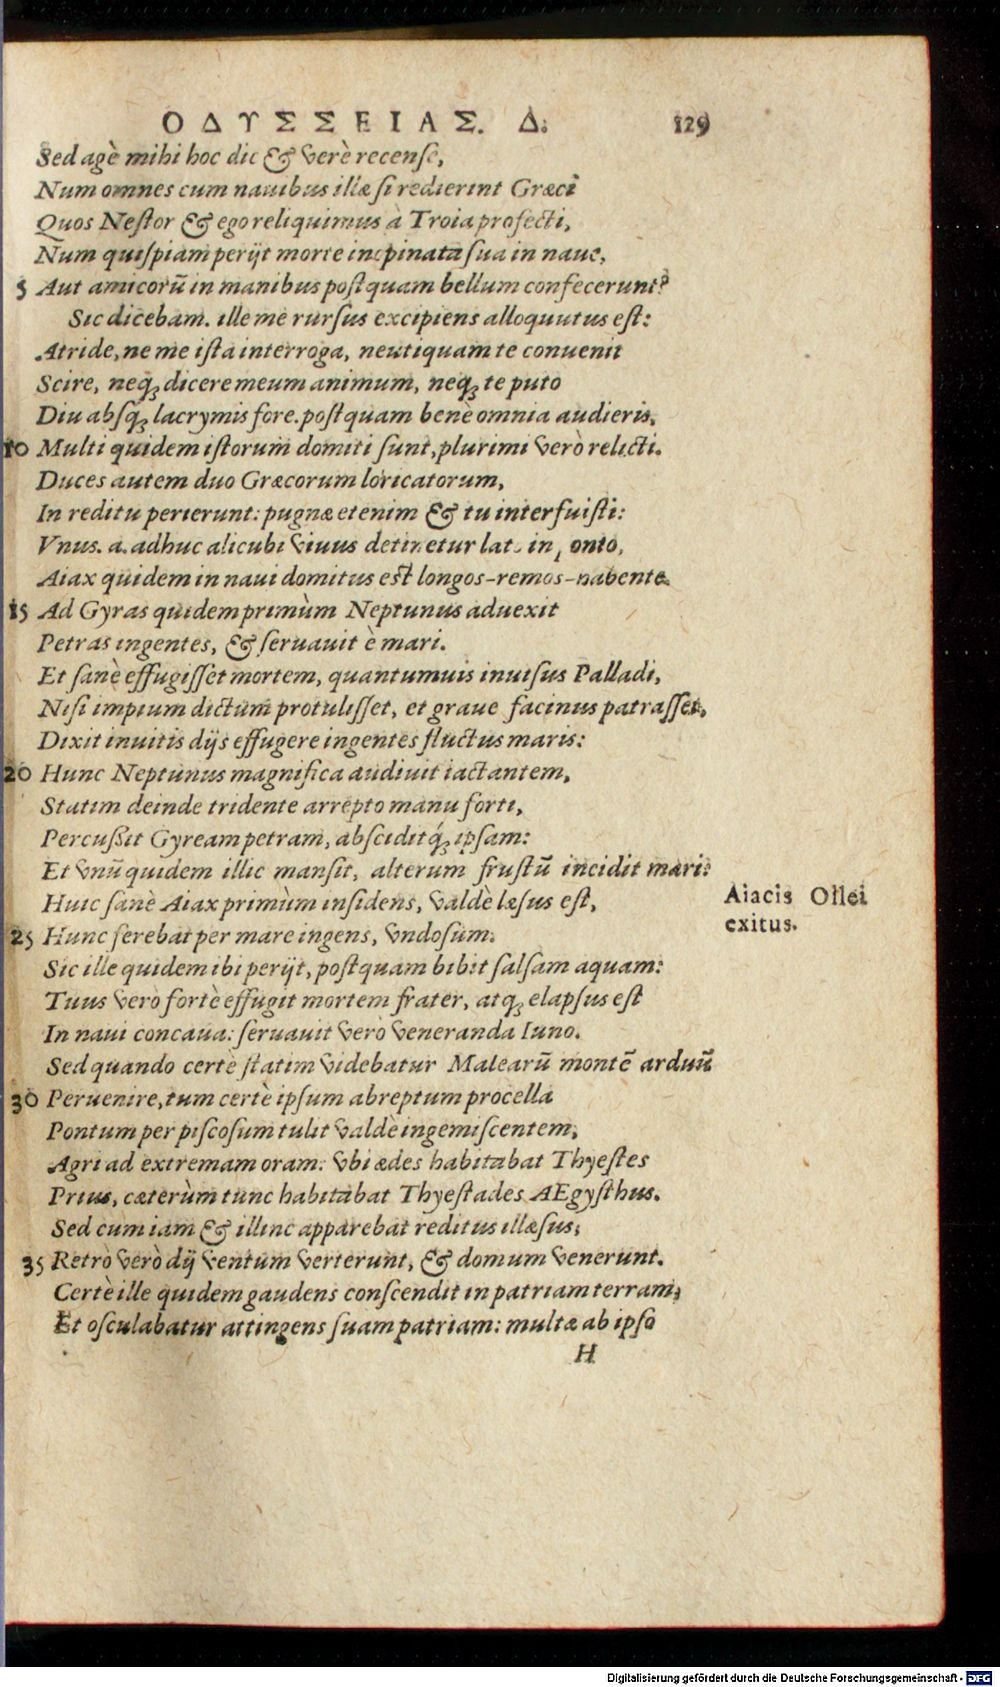 ΟΔΥΣΣΕΙΑΣ. Δ. 129
Sed agè mihi hoc dic & verè recense,
Num omnes cum nauibus illæsi redierint Græci
Quos Nestor & ego reliquimus à Troia profecti,
Num quispiam perijt morte inopinata sua in naue,
5 Aut amicorū in manibus postquam bellum confecerunt?
Sic dicebam. ille me rursus excipiens alloquutus est:
Atride, ne me ista interroga, neutiquam te conuenit
Scire, neq; dicere meum animum, neq; te puto
Diu absq; lacrymis fore. postquam benè omnia audieris,
10 Multi quidem istorum domiti sunt, plurimi verò relicti.
Duces autem duo Græcorum loricatorum,
In reditu perierunt: pugnæ etenim & tu interfuisti:
Vnus. a. adhuc alicubi viuus detinetur in onto,
Aiax quidem in naui domitus est longos-remos-habente.
15 Ad Gyras quidem primùm Neptunus aduexit
Petras ingentes, & seruauit è mari.
Et sanè effugisset mortem, quantumuis inuisus Palladi,
Nisi impium dictum protulisset, et graue facinus patrasset,
Dixit inuitis dijs effugere ingentes fluctus maris:
20 Hunc Neptunus magnifica audiuit iactantem,
Statim deinde tridente arrepto manu forti,
Percußit Gyream petram, absciditq́; ipsam:
Et vnū quidem illic mansit, alterum frustū incidit mari:
Huic sanè Aiax primùm insidens, valdè læsus est,
25 Hunc ferebat per mare ingens, vndosum.
Sic ille quidem ibi perijt, postquam bibit salsam aquam:
Tuus verò fortè effugit mortem frater, atq; elapsus est
In naui concaua: seruauit verò veneranda Iuno.
Sed quando certè statim videbatur Malearū montē arduū
30 Peruenire, tum certè ipsum abreptum procella
Pontum per piscosum tulit valdè ingemiscentem,
Agri ad extremam oram: vbi ædes habitabat Thyestes
Prius, cæterùm tunc habitabat Thyestades AEgysthus.
Sed cum iam & illinc apparebat reditus illæsus,
35 Retrò verò dij ventum verterunt, & domum venerunt.
Certè ille quidem gaudens conscendit in patriam terram,
Et osculabatur attingens suam patriam: multæ ab ipso
H
Aiacis Oilei
exitus.
Digitalisierung gefördert durch die Deutsche Forschungsgemeinschaft - DFG